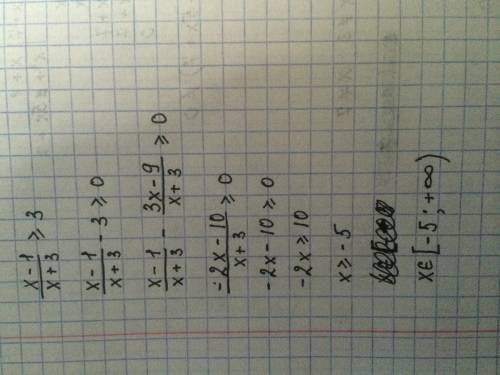 (x-1)/(x+3) ≥ 3
(x-1)/(x+3) - 3 ≥ 0
(x-1)/(x+3) - (3x-9)/(x+3) ≥ 0
(-2x-10)/(x+3) ≥ 0
-2x-10 ≥ 0
-2x ≥ 10
x ≥ -5
x∈[-5; +∞)